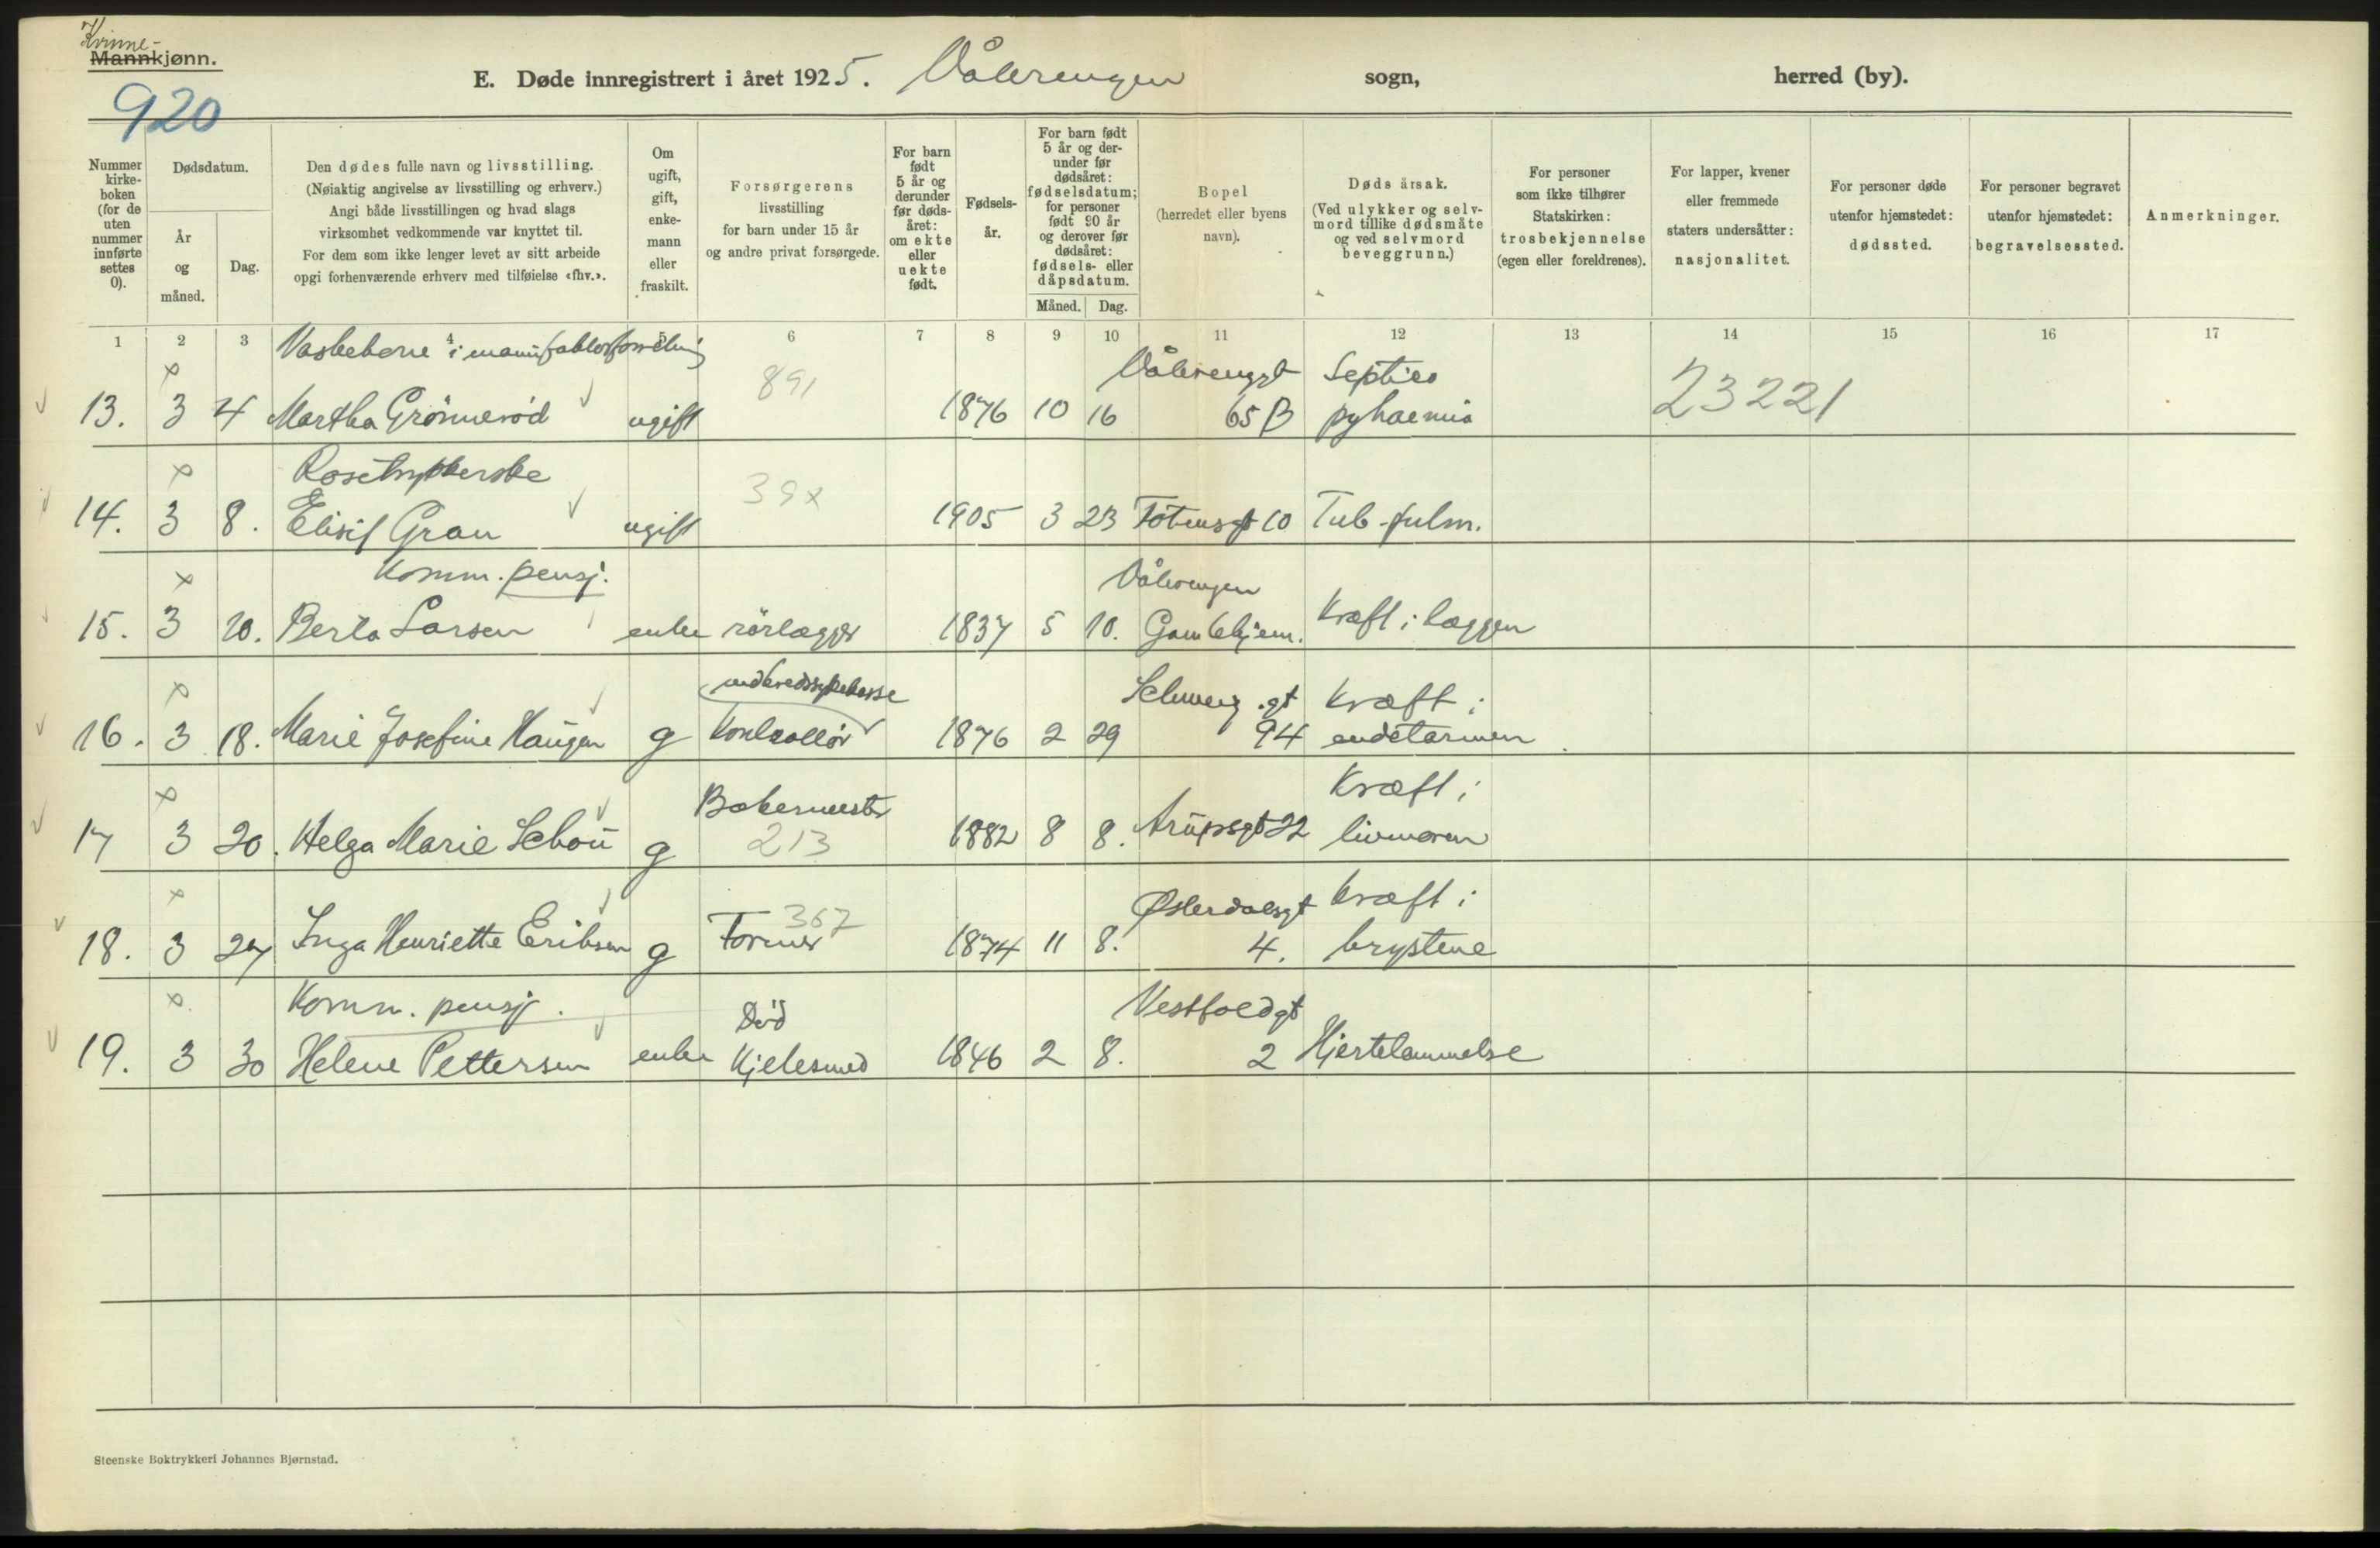 Kvinne-
Mannkjønn.
920
E. Døde innregistrert i året 1925. Vålerengen sogn, herred (by).
Nummer kirke-boken (for de uten nummer innførte settes 0).
Dødsdatum.
År og måned.
Dag.
Den dødes fulle navn og livsstilling.
(Nøiaktig angivelse av livsstilling og erhverv.)
Angi både livsstillingen og hvad slags
virksomhet vedkommende var knyttet til.
For dem som ikke lenger levet av sitt arbeide
opgi forhenværende erhverv med tilføielse «fhv.».
Om ugift, gift, enke-mann eller fraskilt.
Forsørgerens
livsstilling
for barn under 15 år
og andre privat forsørgede.
For barn født 5 år og derunder før døds-året: om ekte eller uekte født.
Fødsels-år.
For barn født 5 år og der-under før dødsåret: fødselsdatum; for personer født 90 år og derover før dødsåret: fødsels- eller dåpsdatum.
Måned. Dag.
Bopel
(herredet eller byens navn).
Dødsårsak.
(Ved ulykker og selv-mord tillike dødsmåte og ved selvmord beveggrunn.)
For personer som ikke tilhører Statskirken: trosbekjennelse (egen eller foreldrenes).
For lapper, kvener eller fremmede staters undersåtter: nasjonalitet.
For personer døde utenfor hjemstedet: dødssted.
For personer begravet utenfor hjemstedet: begravelsessted.
Anmerkninger.
1 2 3 4 5 6 7 8 9 10 11 12 13 14 15 16 17
Vaskekone i manufakturforretning
891 Vålerenggt Septico
13. 3 4 Martha Grönneröd ugift 1876 10 16 65 B pyhaemia 23221
39x
14. 3 8. Elisif Gran ugift 1905 3 23 Totensgt 10 Tub. pulm.
Komm. pensj. Vålerengen
15. 3 10. Berta Larsen enke rörlægger 1837 5 10. Gamlehjem. Kræft i læggen
Schweig.gt Kræft i
16. 3 18. Marie Josefine Haugen g Kontrollör 1876 2 29 94 endetarmen
Bakermester Kræft i
17 3 20. Helga Marie Schou g 213 1882 8 8. Arupsgt 22 livmoren
367 Østerdalsgt Kræft i
18. 3 27 Inga Henriette Eriksen g Former 1874 11 8. 4. brystene
Komm. pensj. Död Vestfoldgt
19. 3 30 Helene Pettersen enke Kjelesmed 1846 2 8. 2 Hjertelammelse
Steenske Boktrykkeri Johannes Bjørnstad.